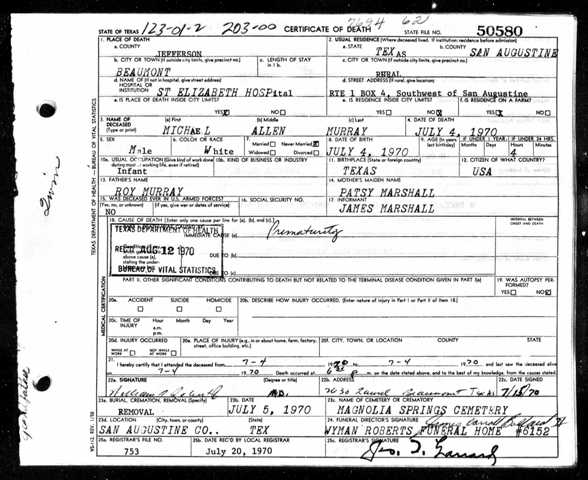 7694 62
STATE OF TEXAS 123-01-2 203-00 CERTIFICATE OF DEATH STATE FILE NO. 50580
1. PLACE OF DEATH 2. USUAL RESIDENCE (Where deceased lived. If institution: residence before admission)
a. COUNTY JEFFERSON a. STATE TEXAS b. COUNTY SAN AUGUSTINE
b. CITY OR TOWN (If outside city limits, give precinct no.) c. LENGTH OF STAY in 1b. c. CITY OR TOWN (If outside city limits, give precinct no.)
BEAUMONT RURAL
d. NAME OF (If not in hospital, give street address) HOSPITAL OR INSTITUTION d. STREET ADDRESS (If rural, give location)
ST ELIZABETH HOSPital RTE 1 BOX 4, Southwest of San Augustine
e. IS PLACE OF DEATH INSIDE CITY LIMITS? YES NO e. IS RESIDENCE INSIDE CITY LIMITS? YES NO f. IS RESIDENCE ON A FARM? YES NO
3. NAME OF DECEASED (Type or print) (a) First (b) Middle (c) Last 4. DATE OF DEATH
MICHAEL ALLEN MURRAY JULY 4, 1970
5. SEX 6. COLOR OR RACE 7. Married Never Married Widowed Divorced 8. DATE OF BIRTH 9. AGE (In years last birthday) IF UNDER 1 YEAR Months Days IF UNDER 24 HRS. Hours Min.
Male White JULY 4, 1970 4
10a. USUAL OCCUPATION (Give kind of work done during most of working life, even if retired) 10b. KIND OF BUSINESS OR INDUSTRY 11. BIRTHPLACE (State or foreign country) 12. CITIZEN OF WHAT COUNTRY?
Infant TEXAS USA
13. FATHER'S NAME 14. MOTHER'S MAIDEN NAME
ROY MURRAY PATSY MARSHALL
15. WAS DECEASED EVER IN U.S. ARMED FORCES? (Yes, no, or unknown) (If yes, give war or dates of service) 16. SOCIAL SECURITY NO. 17. INFORMANT
NO JAMES MARSHALL
18. CAUSE OF DEATH (Enter only one cause per line for (a), (b), and (c).) INTERVAL BETWEEN ONSET AND DEATH
TEXAS DEPARTMENT OF HEALTH
IMMEDIATE CAUSE (a) Prematurity
REC'D AUG 12 1970
DUE TO (b)
above cause (a), stating the under-
BUREAU OF VITAL STATISTICS DUE TO (c)
PART II. OTHER SIGNIFICANT CONDITIONS CONTRIBUTING TO DEATH BUT NOT RELATED TO THE TERMINAL DISEASE CONDITION GIVEN IN PART I(a) 19. WAS AUTOPSY PERFORMED? YES NO
20a. ACCIDENT SUICIDE HOMICIDE 20b. DESCRIBE HOW INJURY OCCURRED. (Enter nature of injury in Part I or Part II of Item 18.)
20c. TIME OF INJURY Hour Month Day Year
a.m.
p.m.
20d. INJURY OCCURRED WHILE AT WORK NOT WHILE AT WORK 20e. PLACE OF INJURY (e.g., in or about home, farm, factory, street, office building, etc.) 20f. CITY, TOWN, OR LOCATION COUNTY STATE
21. I hereby certify that I attended the deceased from 7-4 1970 to 7-4 1970 and last saw the deceased alive
7-4 1970 Death occurred at m. on the date stated above, and to the best of my knowledge, from the causes stated.
22a. SIGNATURE 22b. ADDRESS 22c. DATE SIGNED
William MD. Laurel Beaumont Texas
23a. BURIAL, CREMATION, REMOVAL (Specify) 23b. DATE 23c. NAME OF CEMETERY OR CREMATORY
REMOVAL JULY 5, 1970 MAGNOLIA SPRINGS CEMETERY
23d. LOCATION (City, town, or county) (State) 24. FUNERAL DIRECTOR'S SIGNATURE
SAN AUGUSTINE CO., TEX WYMAN ROBERTS FUNERAL HOME #6152
25a. REGISTRAR'S FILE NO. 25b. DATE REC'D BY LOCAL REGISTRAR 25c. REGISTRAR'S SIGNATURE
753 July 20, 1970
TEXAS DEPARTMENT OF HEALTH — BUREAU OF VITAL STATISTICS
MEDICAL CERTIFICATION